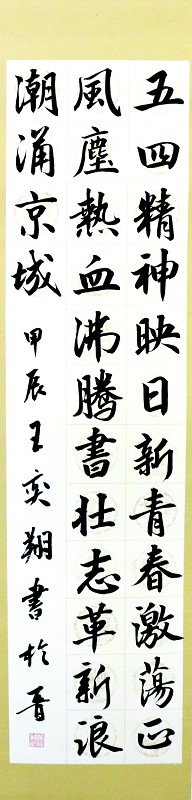 五四精神映日新青春激荡正
風塵熱血沸騰書壯志革新浪
潮涌京城
甲辰王奕翔書於晋